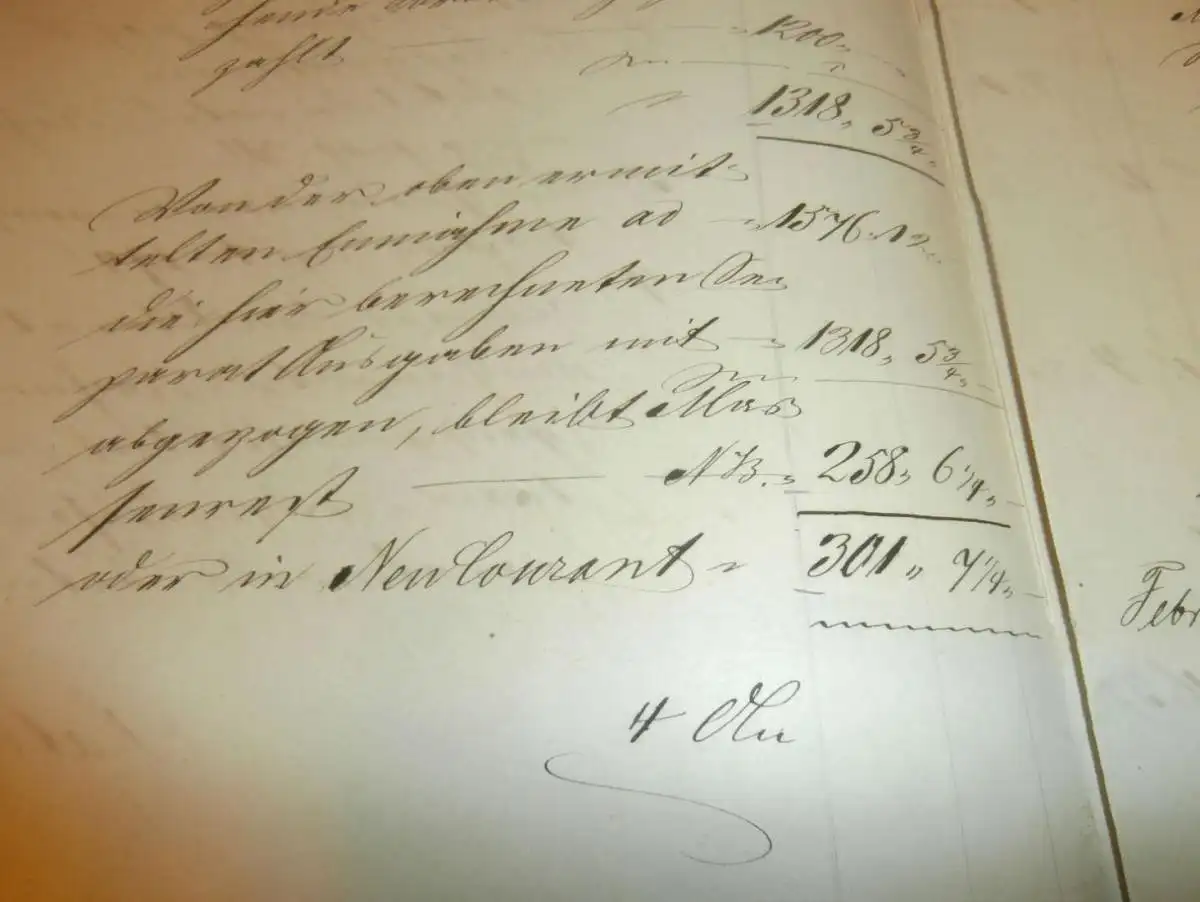 zahlt — „ 1200 „ —
1318 „ 5 3/4 „
Von der oben ermit-
telten Einnahme ad — „ 1576 „ 12 „
die hier berechneten Se-
parat Ausgaben mit — „ 1318 „ 5 3/4 „
abgezogen, bleibt Mas
senrest — N W. „ 258 „ 6 1/4 „
oder in Neu Courant „ 301 „ 7 1/4 „
4
Febr